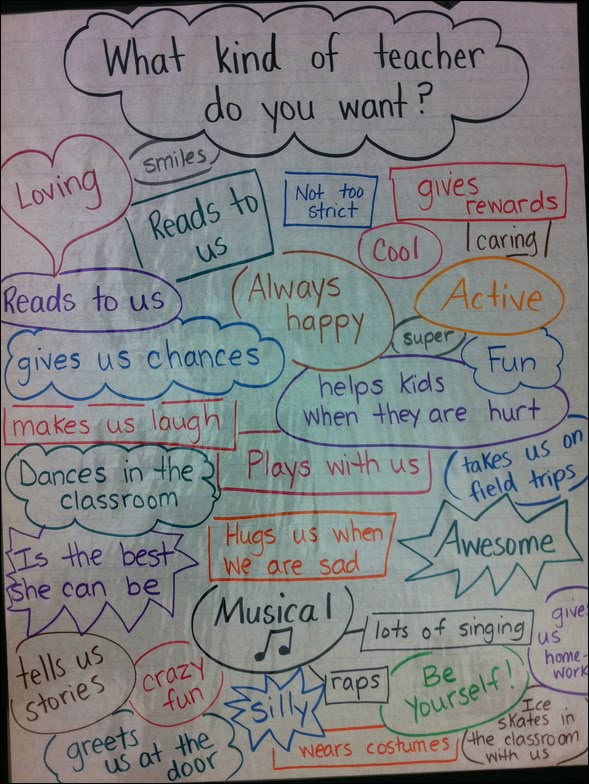 What kind of teacher
do you want?
Loving
smiles
Reads to
us
Not too
strict
gives
rewards
Cool
caring
Reads to us
Always
happy
Active
super
gives us chances
Fun
helps kids
when they are hurt
makes us laugh
Plays with us
takes us on
field trips
Dances in the
classroom
Hugs us when
we are sad
Awesome
Is the best
she can be
Musical
lots of singing
gives
us
home-
work
tells us
stories
crazy
fun
silly
raps
Be
Yourself!
Ice
skates in
the classroom
with us
greets
us at the
door
wears costumes